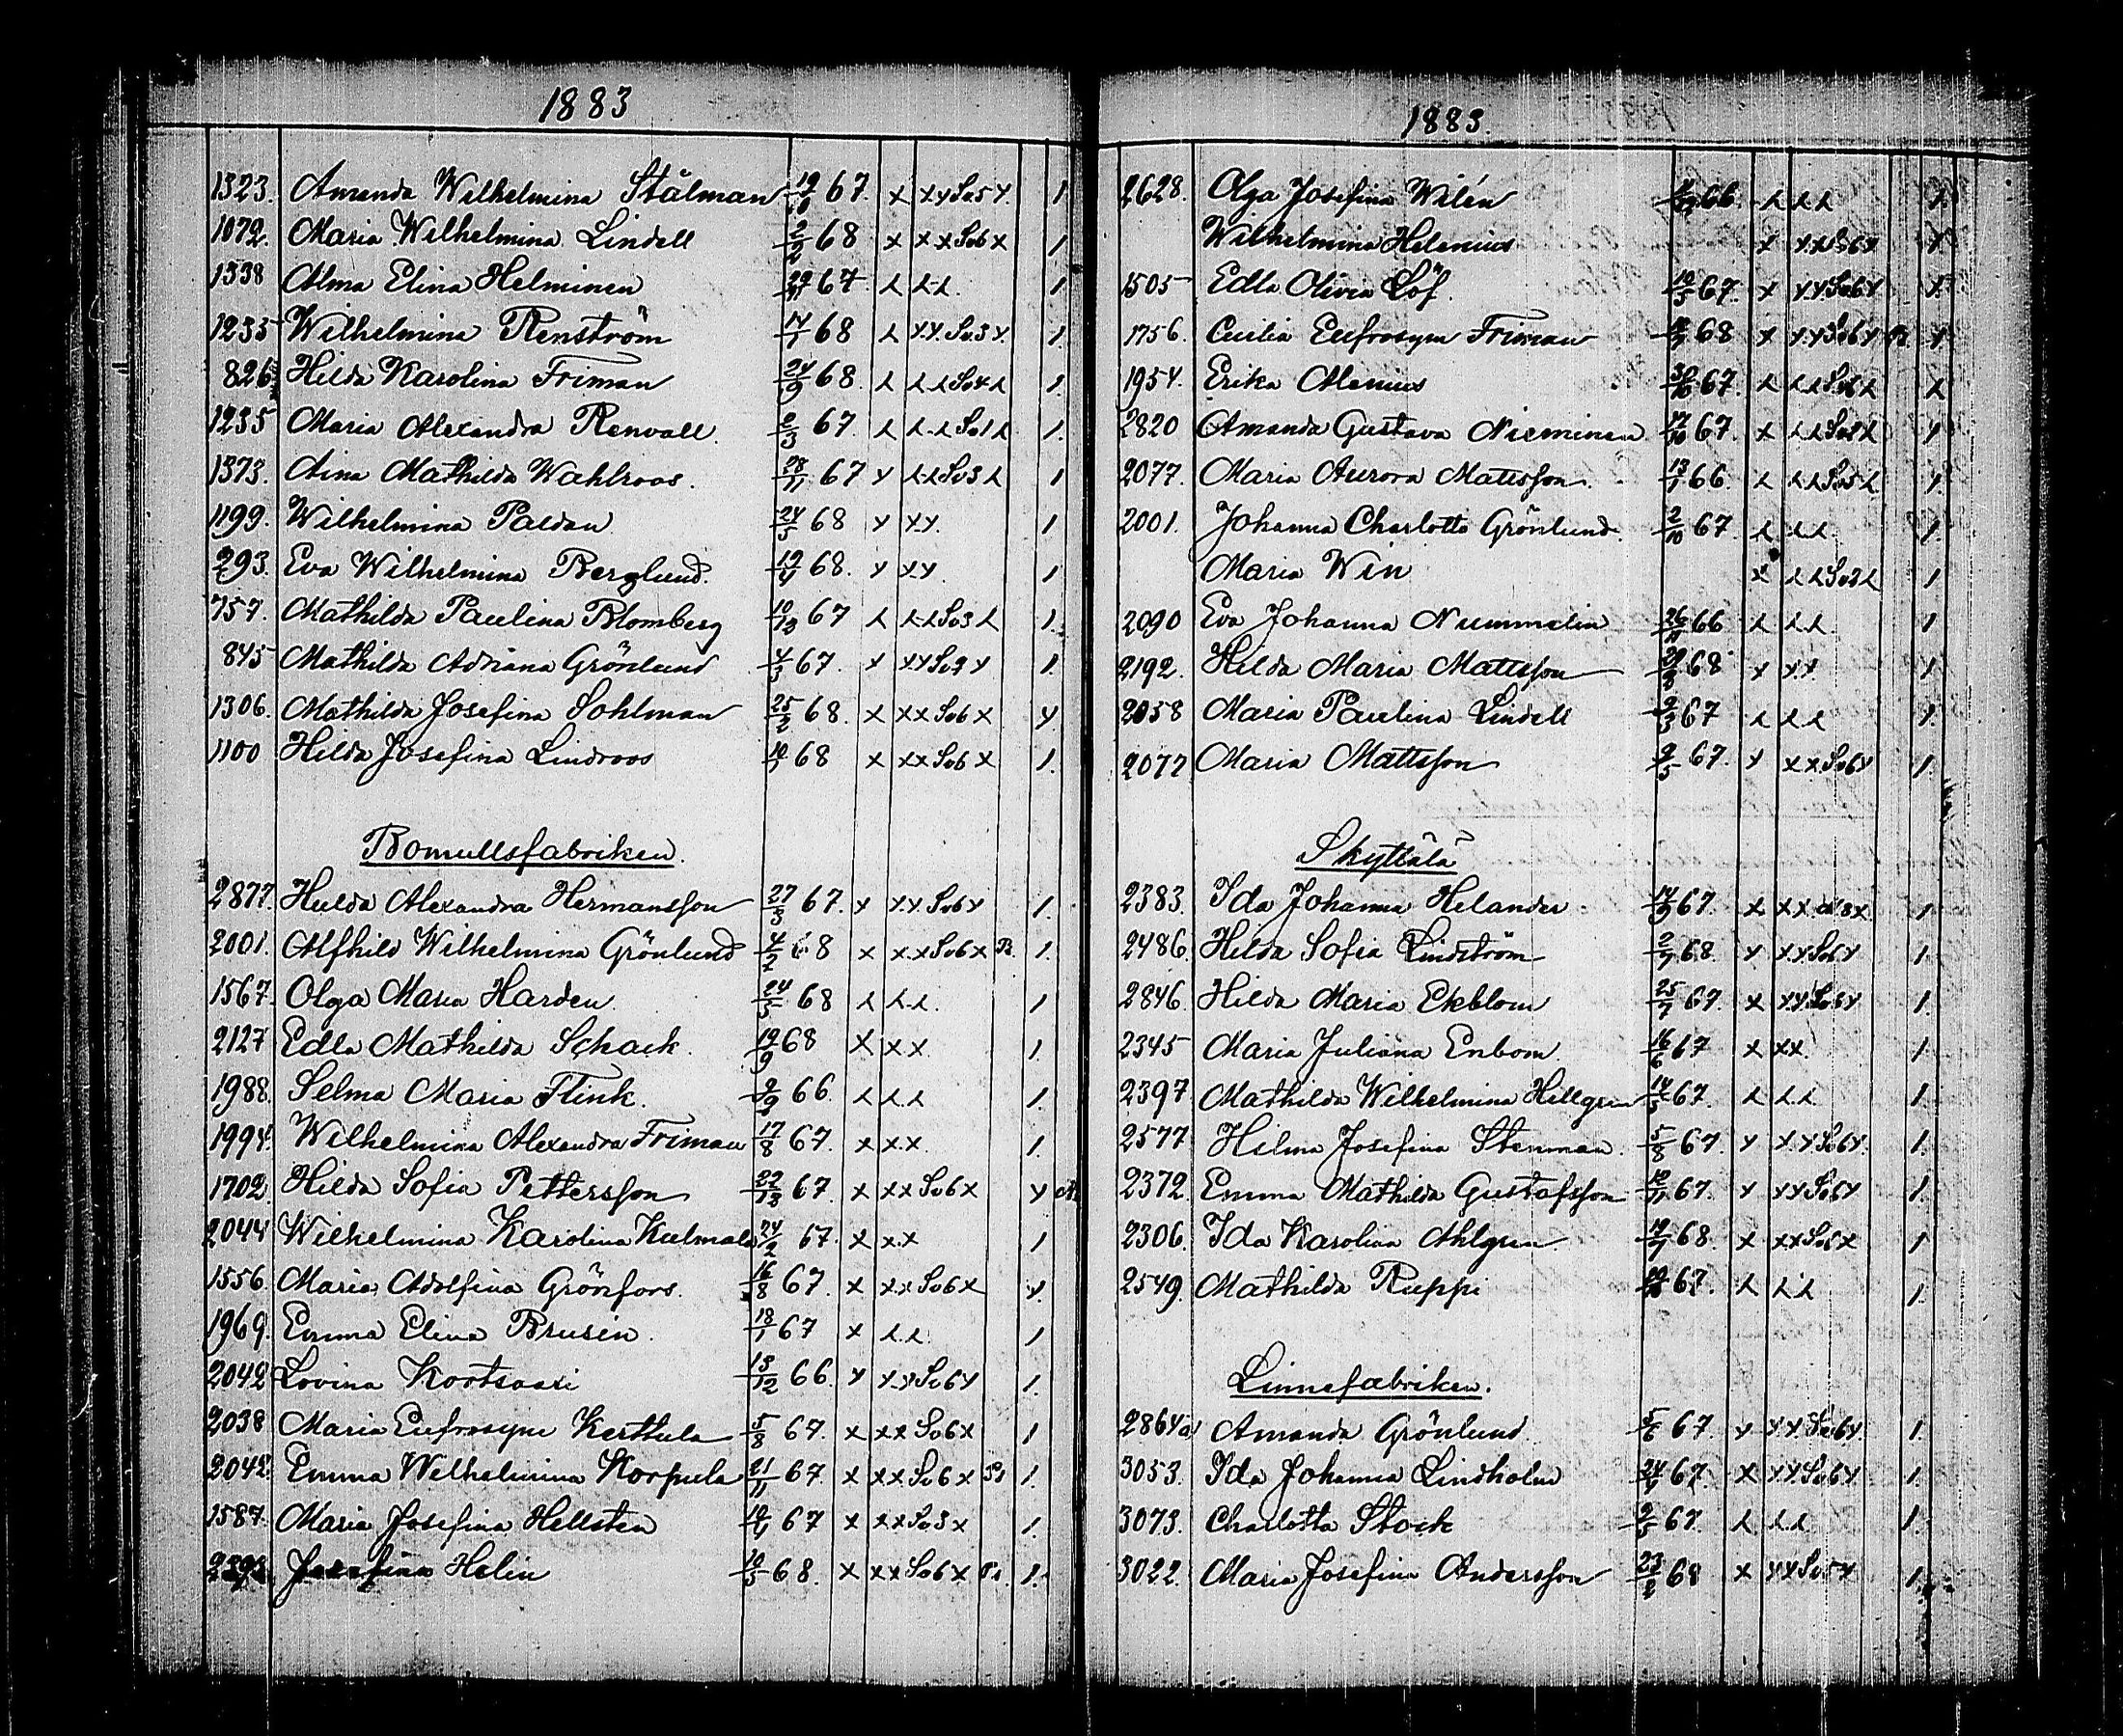 1883
1323. Amanda Wilhelmina Stålman 19/10 67. x x y Sv5 y. 1
1072. Maria Wilhelmina Lindell 2/2 68 x x x Sv6 x 1.
1338 Alma Elina Helminen 29/11 67 L L L 1
1235 Wilhelmina Renström 14/1 68 L y y. Sv.3 y. 1.
826 Hilda Karolina Friman 24/9 68. L L L Sv4 L 1.
1235 Maria Alexandra Renvall. 2/3 67. L L L Sv1 L 1.
1373. Aina Mathilda Wahlroos. 28/11 67 y L L Sv3 L 1
1199. Wilhelmina Paldan 24/5 68 y x y. 1
293. Eva Wilhelmina Berglund. 19/4 68. y x y 1
757. Mathilda Paulina Blomberg 10/12 67 L L L Sv3 L 1.
845 Mathilda Adriana Grönlund 4/5 67. y x y Sv2 y 1.
1306. Mathilda Josefina Sohlman 25/2 68. x x x Sv6 x y.
1100 Hilda Josefina Lindroos 10/1 68 x x x Sv6 x 1.
Bomullsfabriken.
2877. Hulda Alexandra Hermansson 27/3 67. y x y. Sv6 y 1.
2001. Alfhild Wilhelmina Grönlund 4/2 68 x x x Sv6 x B. 1.
1567. Olga Maria Harden 24/5 68 L L L. 1
2127 Edla Mathilda Schack. 19/9 68 x x x 1.
1988. Selma Maria Flink. 66. L L L 1.
1994. Wilhelmina Alexandra Friman 17/8 67. x x x 1.
1702 Hilda Sofia Pettersson 22/12 67. x x x Sv6 x y
2044 Wilhelmina Karolina Kulmala 24/2 67. x x x 1
1556. Maria Adolfina Grönfors. 16/8 67. x x x Sv6 x y.
1969. Emma Elina Brusén. 18/1 67 x L L 1
2042 Lovina Kortsaari 13/12 66. y y y Sv6 y 1.
2038 Maria Eufrosyne Kerttula 5/8 67. x x x Sv6 x 1
2042. Emma Wilhelmina Korpula 21/11 67. x x x Sv6 x 1.
1587. Maria Josefina Hellsten 67 x x x Sv3 x 1.
Josefina Helin 10/5 68. x x x Sv6 x 1.
1883.
2628. Olga Josefina Wilén 66. L L L
Wilhelmina Helenius x x x Sv6 x
1505 Edla Olivia Löf. 19/5 67. x y y Sv6 y
1756. Cecilia Eufrosyne Friman 68 x y y Sv6 y
1954. Erika Alenius 67. L L L Sv6 L
2820 Amanda Gustava Nieminen 17/10 67. x L L
2077. Maria Aurora Mattsson. 13/1 66. L L L Sv5 L
2001. Johanna Charlotta Grönlund. 2/10 67. L L L 1.
Maria Win x L L Sv2 L 1
2090 Eva Johanna Nummelin 26/11 66 L L L 1
2192. Hilda Maria Mattsson 29/8 68 x y y 1
2058 Maria Paulina Lindell 9/3 67 L L L 1.
2077 Maria Mattsson 9/5 67. y x x Sv6 y 1.
Skyttälä
2383. Ida Johanna Helander 14/9 67. x x x 1
2486. Hilda Sofia Lindström 2/7 68. y x y Sv6 y 1.
2846. Hilda Maria Ekblom 25/7 67. x x y 1.
2345 Maria Juliana Enbom. 16/6 67 x x x. 1.
2397 Mathilda Wilhelmina Hellgren 14/5 67. L L L 1.
2577 Hilma Josefina Stenman. 5/8 67. y x y Sv6 y. 1.
2372. Emma Mathilda Gustafsson 12/11 67. y x y Sv6 y 1.
2306. Ida Karolina Ahlgren 19/7 68. x x x Sv6 x 1
2549. Mathilda Ruppi 67. L L L 1.
Linnefabriken.
2864a) Amanda Grönlund 5/6 67. y y y Sv6 y. 1.
3053. Ida Johanna Lindholm 24/4 67. x y y Sv6 y 1.
3073. Charlotta Stock 9/5 67. L L L 1.
3022. Maria Josefina Andersson 23/2 68 x y x Sv5 y 1.